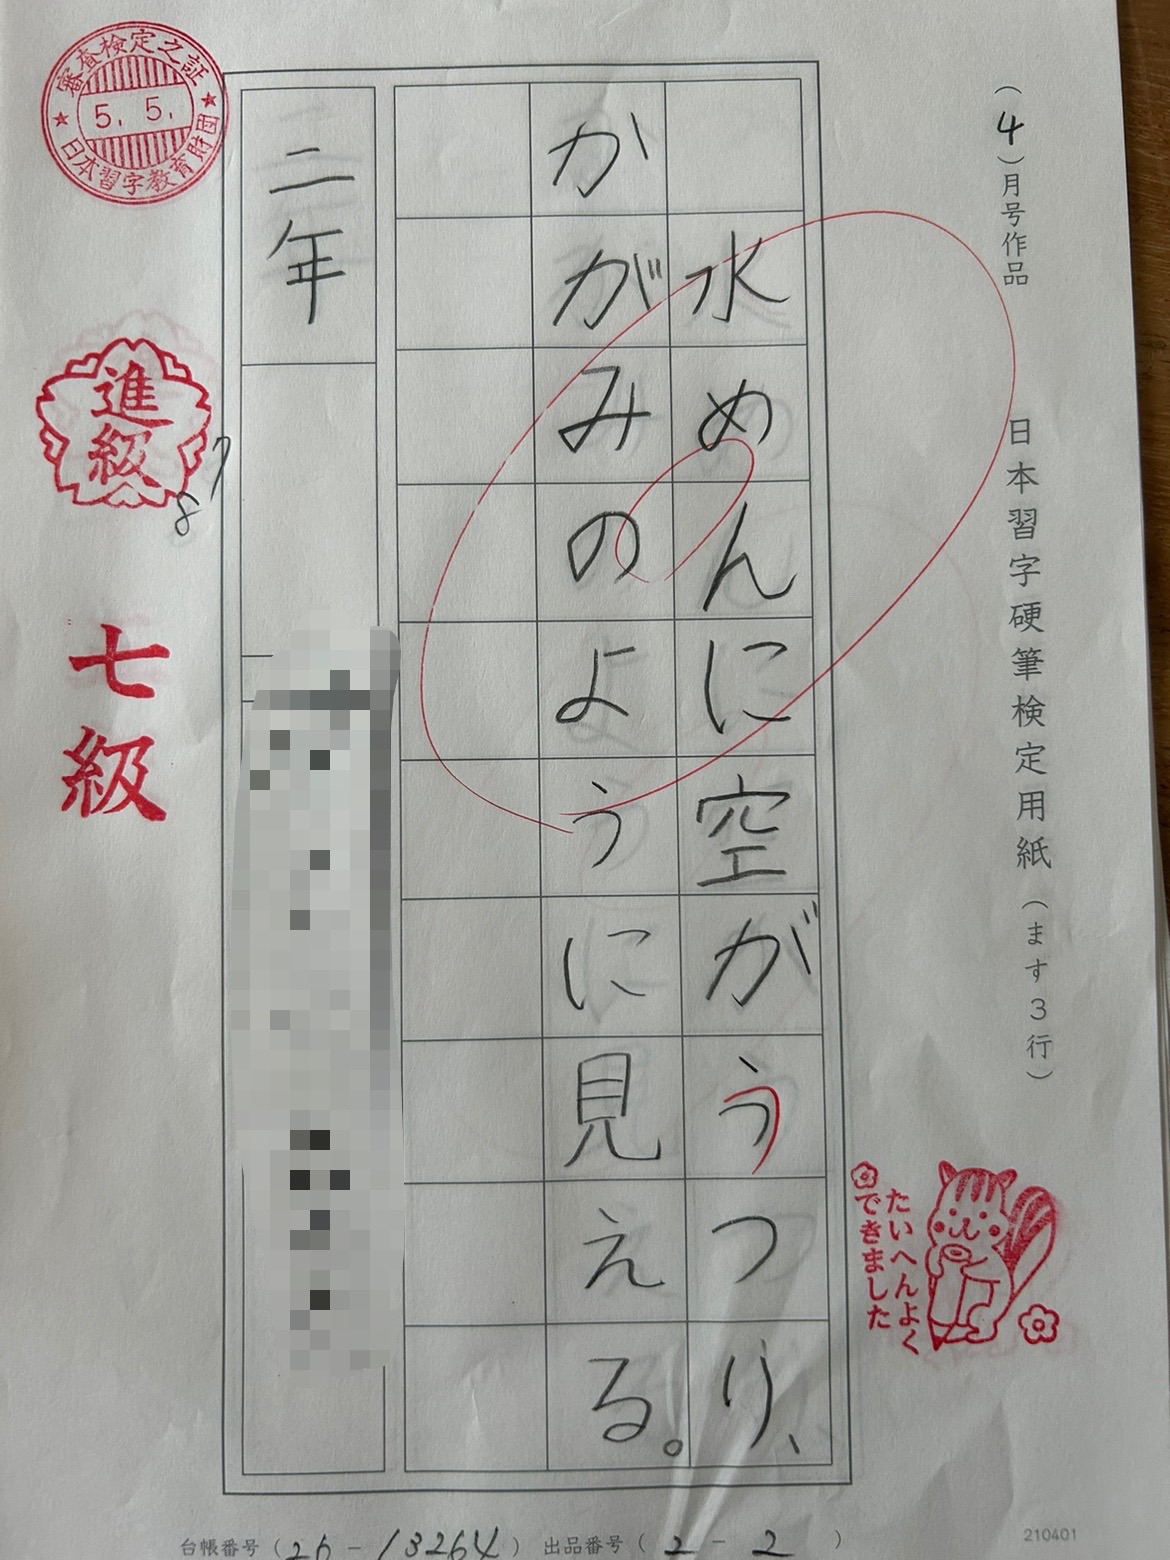 (4)月号作品 日本習字硬筆検定用紙(ます3行)
水めんに空がうつり、
かがみのように見える。
二年
審査検定之証
5.5.
日本習字教育財団
進級
8 7
七級
たいへんよく
できました
台帳番号(26-13264) 出品番号(2-2)
210401